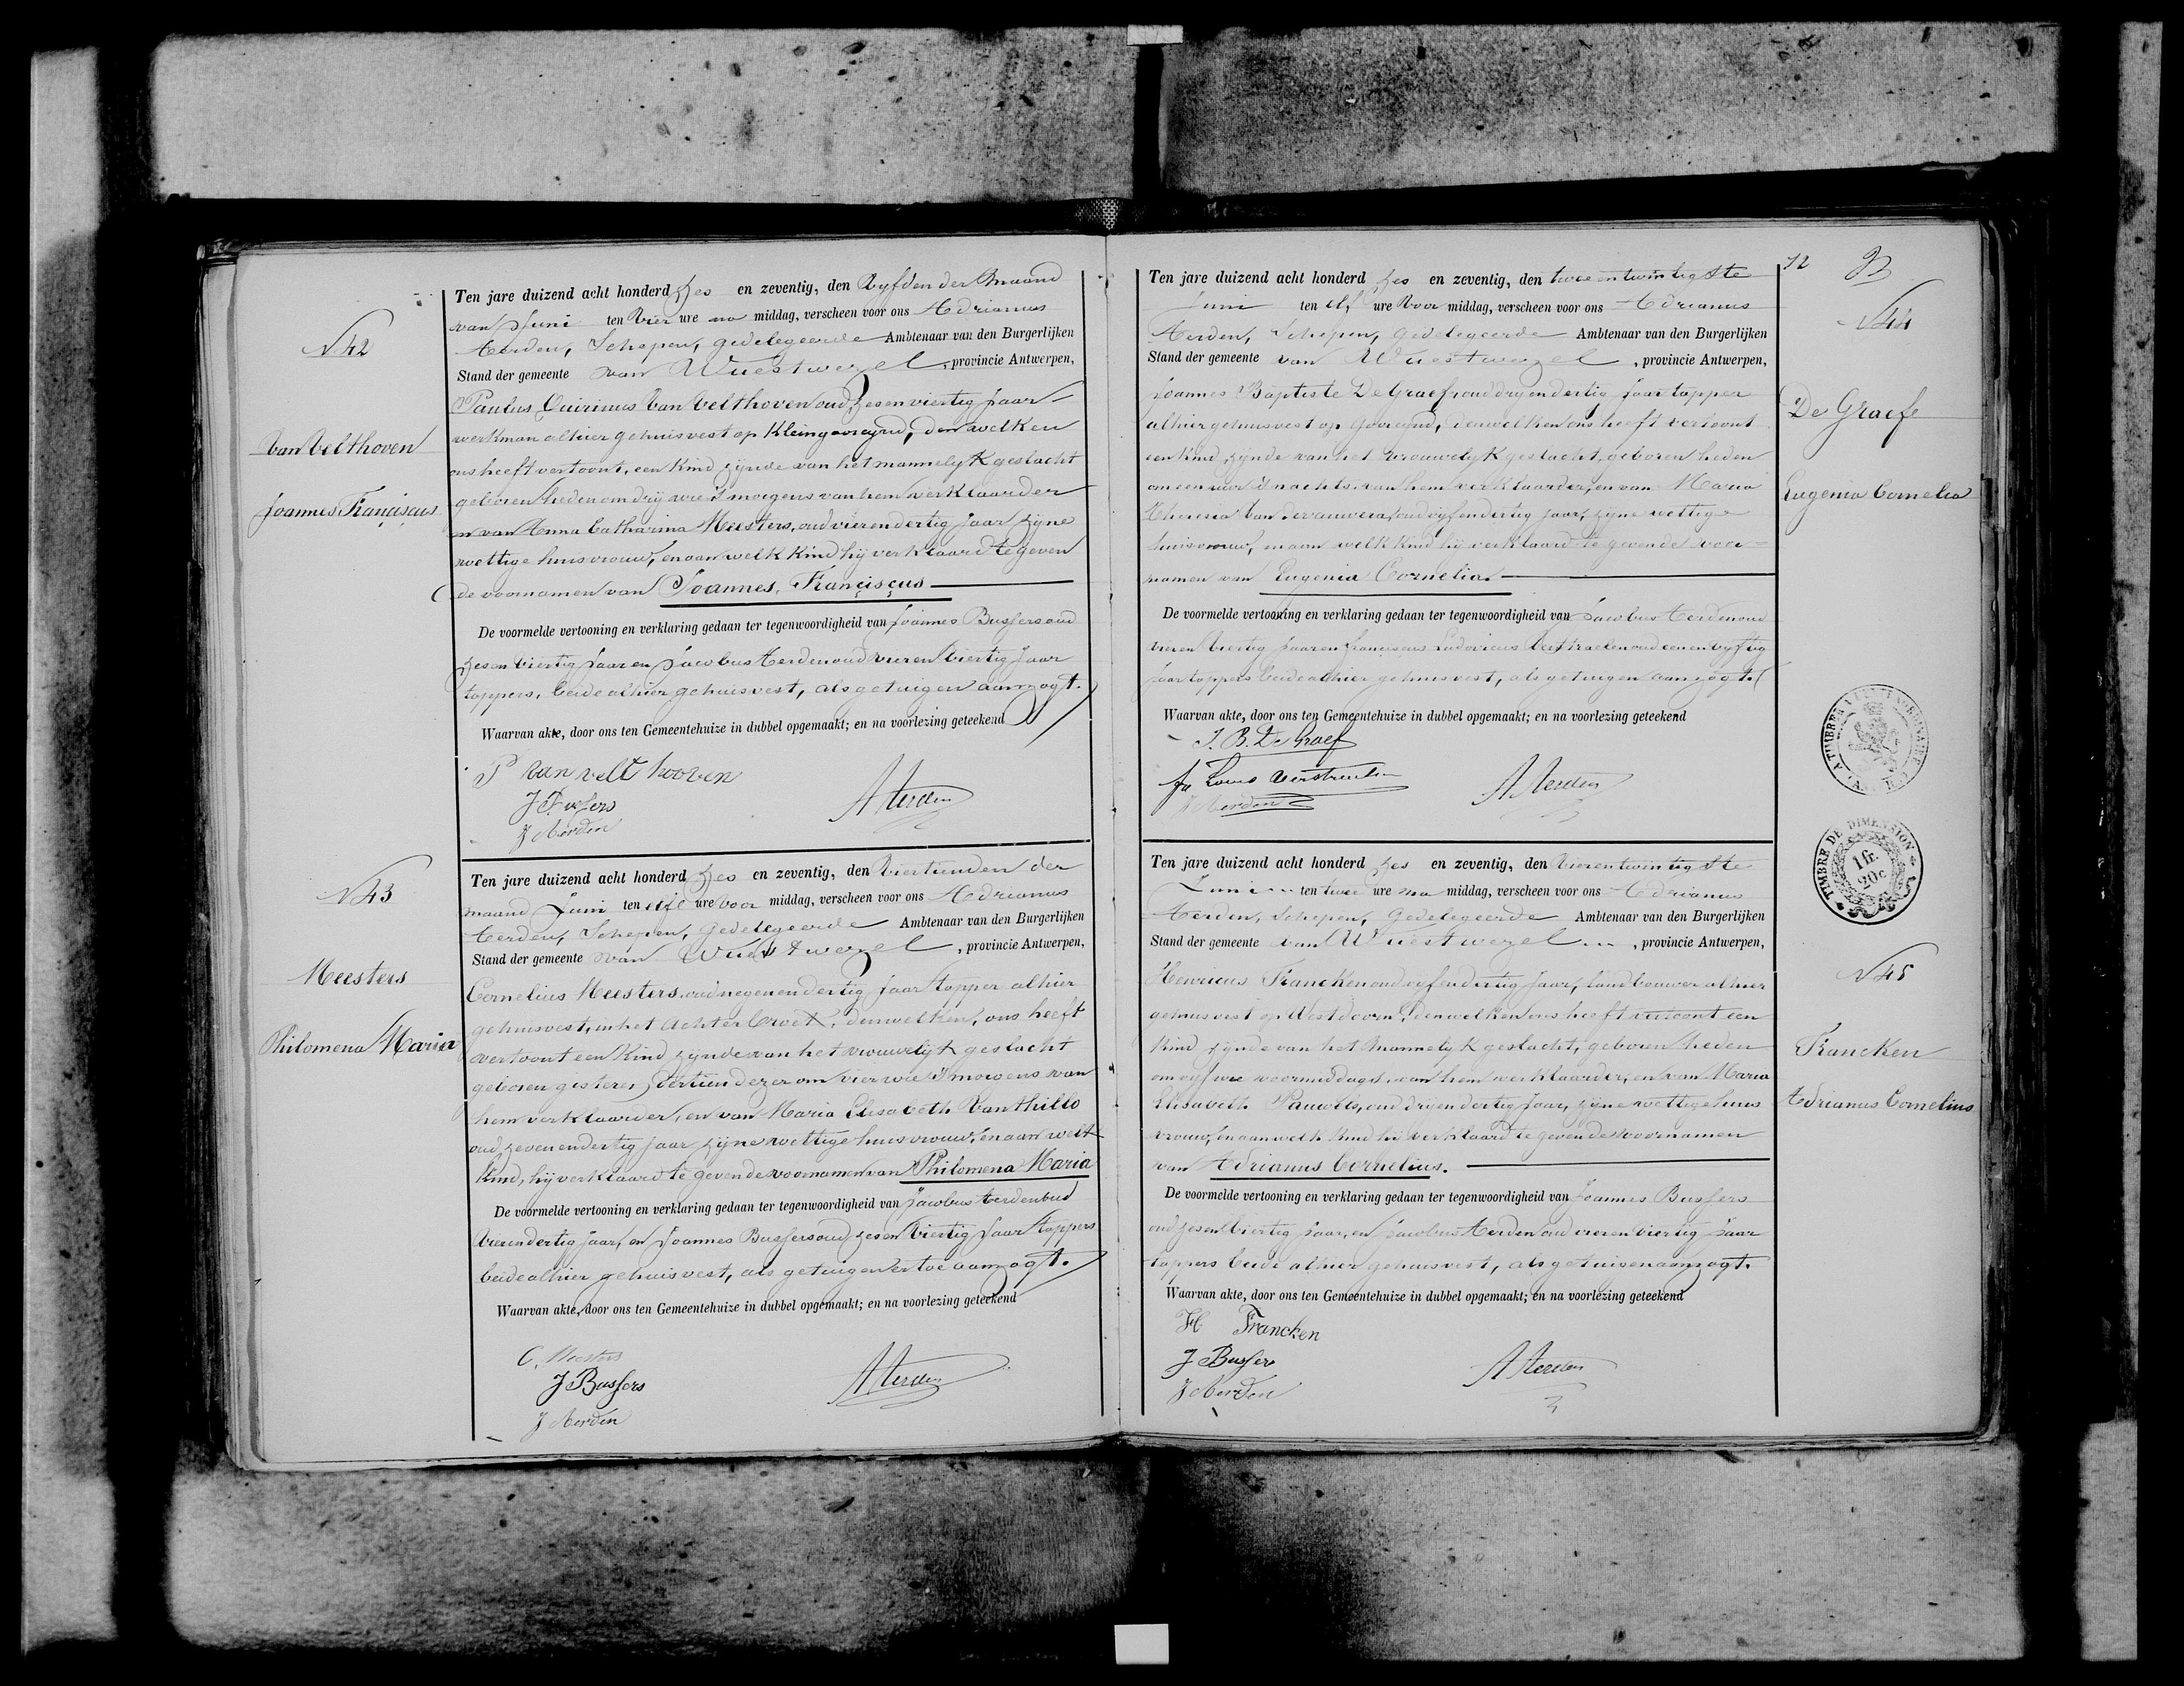 N 42
Van Velthoven
Joannes Franciscus
Ten jare duizend acht honderd zes en zeventig, den Vyfden der Maand
van Juni ten Vier ure na middag, verscheen voor ons Adrianus
Aerden, Schepen, gedelegeerde Ambtenaar van den Burgerlijken
Stand der gemeente van Wuestwezel, provincie Antwerpen,
Paulus Quirinus Van Velthoven oud zes en viertig Jaar
werkman alhier gehuisvest op Kleingooreynd, den welken
ons heeft vertoont, een Kind zijnde van het mannelyk geslacht
geboren heden om dry ure 's morgens van hem verklaarder
en van Anna Catharina Meesters, oud vierendertig Jaar zijne
wettige huisvrouw, en aan welk kind hij verklaard te geven
de voornamen van Joannes, Franciscus
De voormelde vertooning en verklaring gedaan ter tegenwoordigheid van Joannes Bussers oud
zes en Viertig Jaar en Jacobus Aerden oud vier en Viertig Jaar
toppers, beide alhier gehuisvest, als getuigen aanzogt.
Waarvan akte, door ons ten Gemeentehuize in dubbel opgemaakt; en na voorlezing geteekend
P van velt hooven
J Bussers
J Aerden
A Aerden
N 43
Meesters
Philomena Maria
Ten jare duizend acht honderd zes en zeventig, den Viertienden der
maand Juni ten elf ure voor middag, verscheen voor ons Adrianus
Aerden, Schepen, gedelegeerde Ambtenaar van den Burgerlijken
Stand der gemeente van Wuestwezel, provincie Antwerpen,
Cornelius Meesters, oud negenendertig Jaar topper alhier
gehuisvest, in het Achterbroek, denwelken, ons heeft
vertoont een Kind zijnde van het vrouwelijk geslacht
geboren gisteren dertien dezer om vier ure 's morgens van
hem verklaarder, en van Maria Elisabeth Van Thillo
oud zevenendertig jaar zijne wettige huisvrouw, en aan welk
Kind, hij verklaard te geven de voornamen van Philomena Maria
De voormelde vertooning en verklaring gedaan ter tegenwoordigheid van Jacobus Aerden oud
Jaar, en Joannes Bussers oud zes en Viertig Jaar toppers
beide alhier gehuisvest, als getuigen ertoe aanzogt.
Waarvan akte, door ons ten Gemeentehuize in dubbel opgemaakt; en na voorlezing geteekend
C. Meesters
J Bussers
J Aerden
A Aerden
12
Ten jare duizend acht honderd zes en zeventig, den twee en twintigste
Juni ten elf ure Voor middag, verscheen voor ons Adrianus
Aerden, Schepen, gedelegeerde Ambtenaar van den Burgerlijken
Stand der gemeente van Wuestwezel, provincie Antwerpen,
Joannes Baptiste De Graef, oud dryendertig Jaar topper
alhier gehuisvest op Gooreynd, denwelken ons heeft vertoont
een kind, zijnde van het vrouwelyk geslacht, geboren heden
om een uur 's nachts van hem verklaarder, en van Maria
Theresia Van oud vyfendertig Jaar, zijne wettige
huisvrouw, en aan welk kind hij verklaard te geven de voor=
namen van Eugenia Cornelia.
De voormelde vertooning en verklaring gedaan ter tegenwoordigheid van Jacobus Aerden oud
vier en Viertig Jaar en Franciscus Ludovicus Verstraelen oud een en Vyftig
Jaar toppers beide alhier gehuisvest, als getuigen aanzogt.
Waarvan akte, door ons ten Gemeentehuize in dubbel opgemaakt; en na voorlezing geteekend
J. B. De Graef
Louis Verstraelen
J Aerden
A Aerden
N 44
De Graefe
Eugenia Cornelia
TIMBRE DE DIMENSION
1 fr.
20c
Ten jare duizend acht honderd zes en zeventig, den Vierentwintigste
Juni ten twee ure na middag, verscheen voor ons Adrianus
Aerden, Schepen, gedelegeerde Ambtenaar van den Burgerlijken
Stand der gemeente van Wuestwezel, provincie Antwerpen,
Henricus Francken oud vijfendertig Jaar, landbouwer alhier
gehuisvest op Westdoorn, denwelken ons heeft vertoont een
Kind zijnde van het Mannelyk geslacht, geboren heden
om vyf ure voormiddags, van hem verklaarder, en van Maria
Elisabeth Pauwels, oud dryendertig Jaar, zijne wettige huis
vrouw, en aan welk kind hij verklaard te geven de voornamen
van Adrianus Cornelius.
De voormelde vertooning en verklaring gedaan ter tegenwoordigheid van Joannes Bussers
oud zes en Viertig Jaar, en Jacobus Aerden oud vier en Viertig Jaar
toppers beide alhier gehuisvest, als getuigen aanzogt.
Waarvan akte, door ons ten Gemeentehuize in dubbel opgemaakt; en na voorlezing geteekend
H Francken
J Bussers
J Aerden
A Aerden
N 45
Francken
Adrianus Cornelius